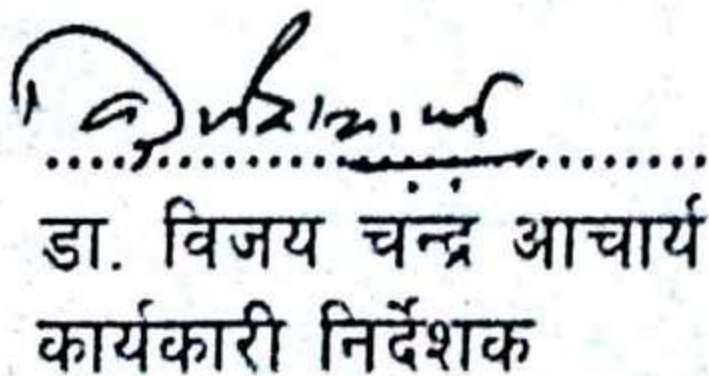 डा. विजय चन्द्र आचार्य
कार्यकारी निर्देशक